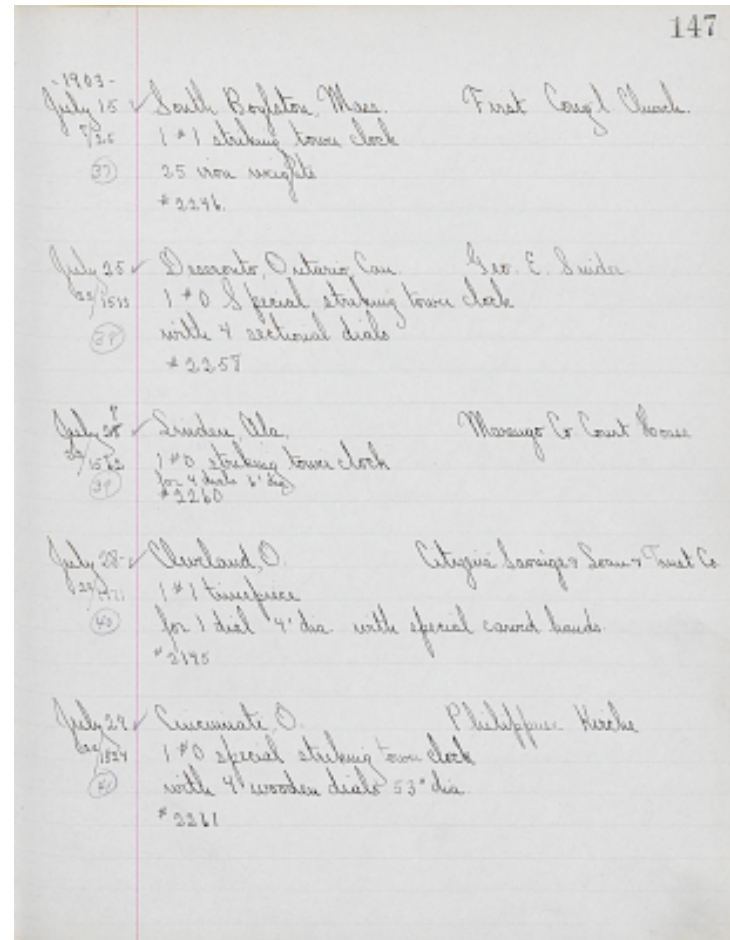 147
-1903-
July 15 ✓ South Boylston, Mass. First Cong'l Church.
1 #1 striking town clock
37 25 iron weights
#2246.
July 25 ✓ Deseronto, Ontario, Can. Geo. E. Snider
22/1515 1 #0 Special striking town clock
38 with 4 sectional dials
#2258
July 28 ✓ Linden, Ala. Marengo Co. Court House
22/1562 1 #0 striking town clock
39 for 4 dials 6' dia
#2260
July 28- ✓ Cleveland, O. Citizens Savings & Loan & Trust Co
1 #1 timepiece
40 for 1 dial 4' dia. with special carved hands.
#2195
July 29 ✓ Cincinnati, O. Philippus Kirche
22/1524 1 #0 special striking town clock
41 with 4 wooden dials 53" dia.
#2261